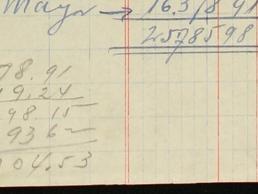 Mayo → 16.378 91
2578598
78.91
19.24
98.15
936
104.53